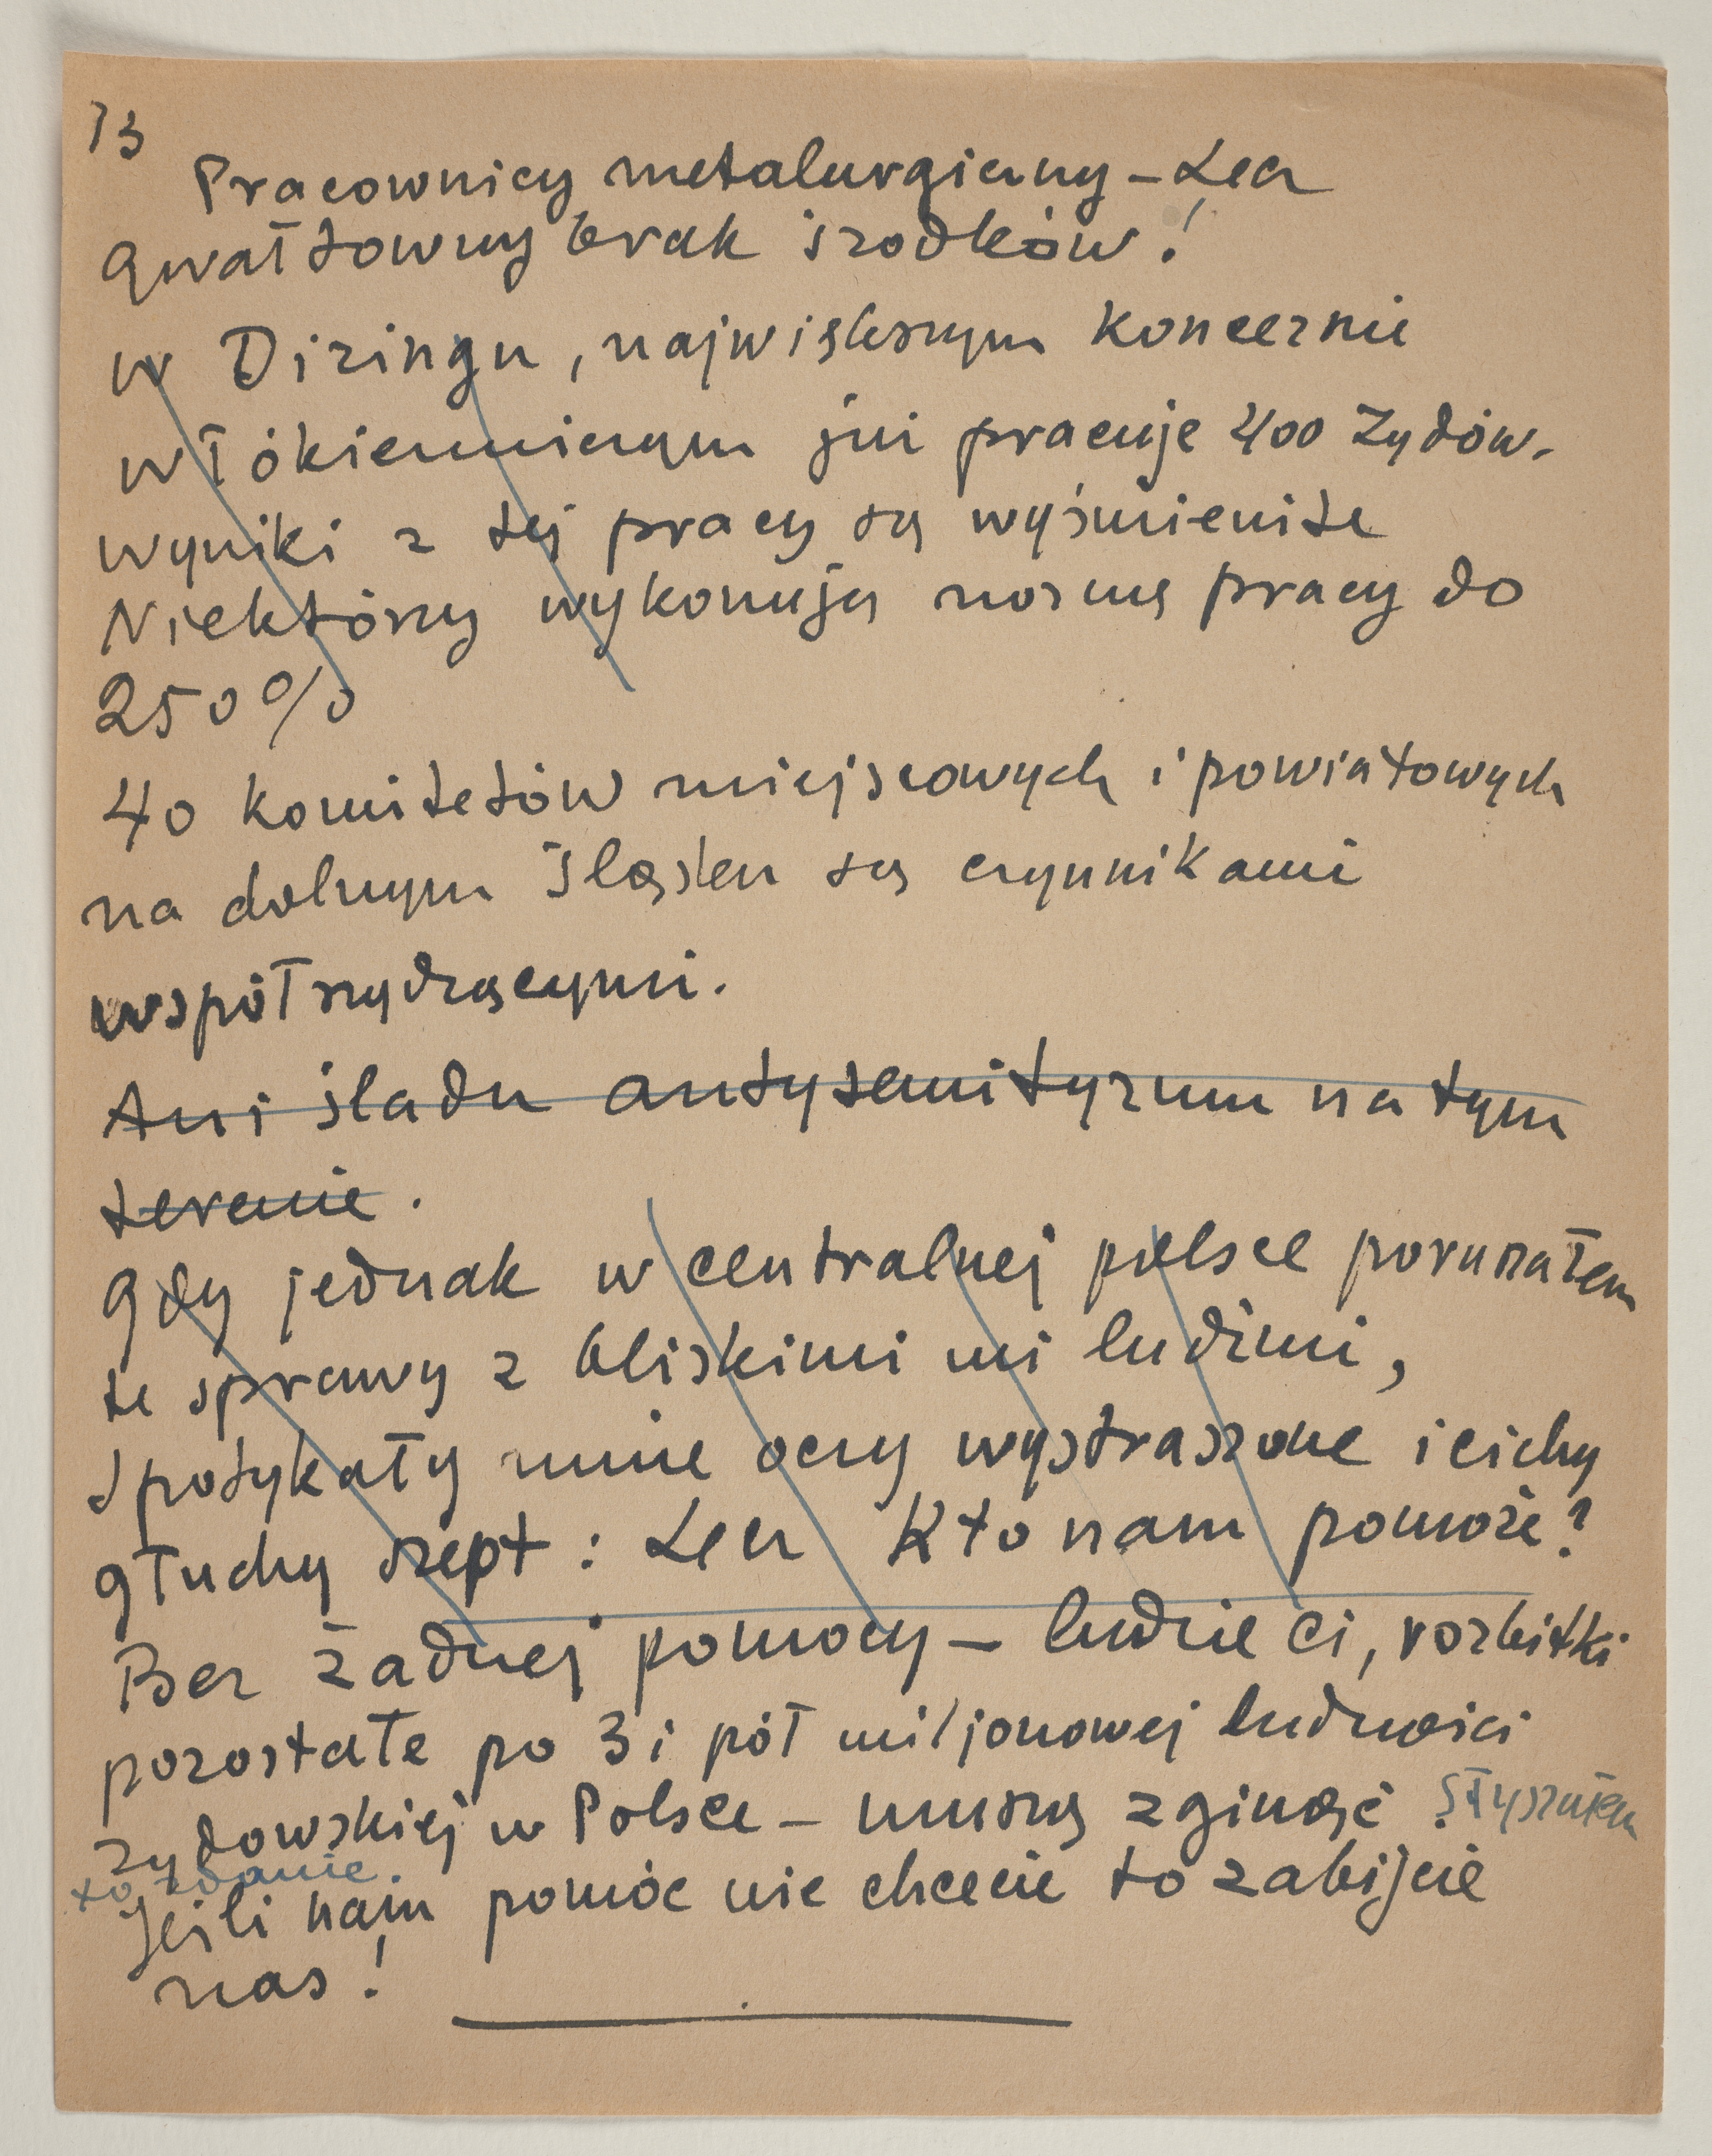 13
Pracownicy metalurgiczny – Lecz
gwałtowny brak środków!
w Diringu, największym koncernie
włókienniczym już pracuje 400 Żydów.
wyniki z tej pracy są wyśmienite
Niektórzy wykonują normę pracy do
250%
40 komitetów miejscowych i powiatowych
na dolnym Śląsku są czynnikami
współrządzącymi.
Ani śladu antysemityzmu na tym
terenie.
gdy jednak w centralnej polsce poruszałem
te sprawy z bliskimi mi ludźmi,
spotykały mnie oczy wystraszone i cichy
głuchy szept: Lecz Kto nam pomoże?
Bez żadnej pomocy – ludzie ci, rozbitki
pozostałe po 3 i pół miljonowej ludności
żydowskiej w Polsce – muszą zginąć. Słyszałem
to zdanie.
Jeśli nam pomóc nie chcecie to zabijcie
nas!